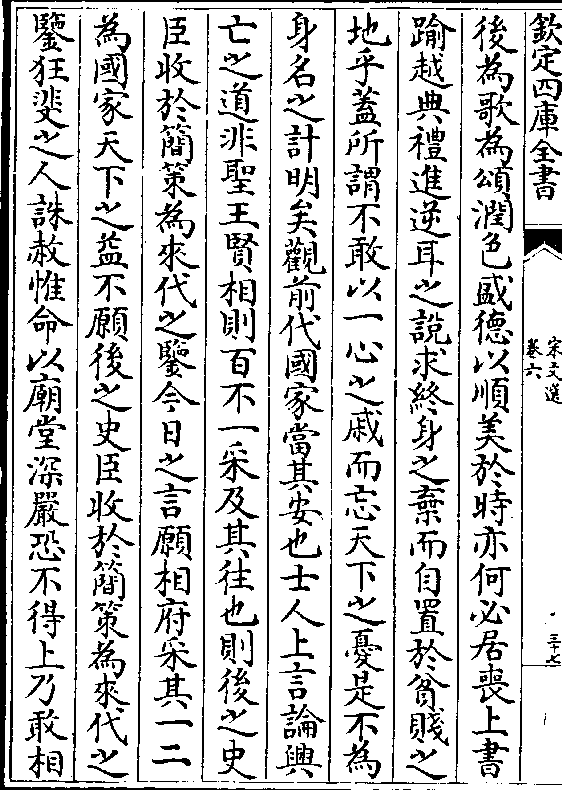 欽定四庫全書
宋文選
卷六
三十七
後為歌為頌潤色盛德以順美於時亦何必居喪上書
踰越典禮進逆耳之說求終身之棄而自置於貧賤之
地乎蓋所謂不敢以一心之戚而忘天下之憂是不為
身名之計明矣觀前代國家當其安也士人上言論興
亡之道非聖王賢相則百不一采及其往也則後之史
臣收於簡策為來代之鑒今日之言願相府采其一二
為國家天下之益不願後之史臣收於簡策為來代之
鑒狂斐之人誅赦惟命以廟堂深嚴恐不得上乃敢相